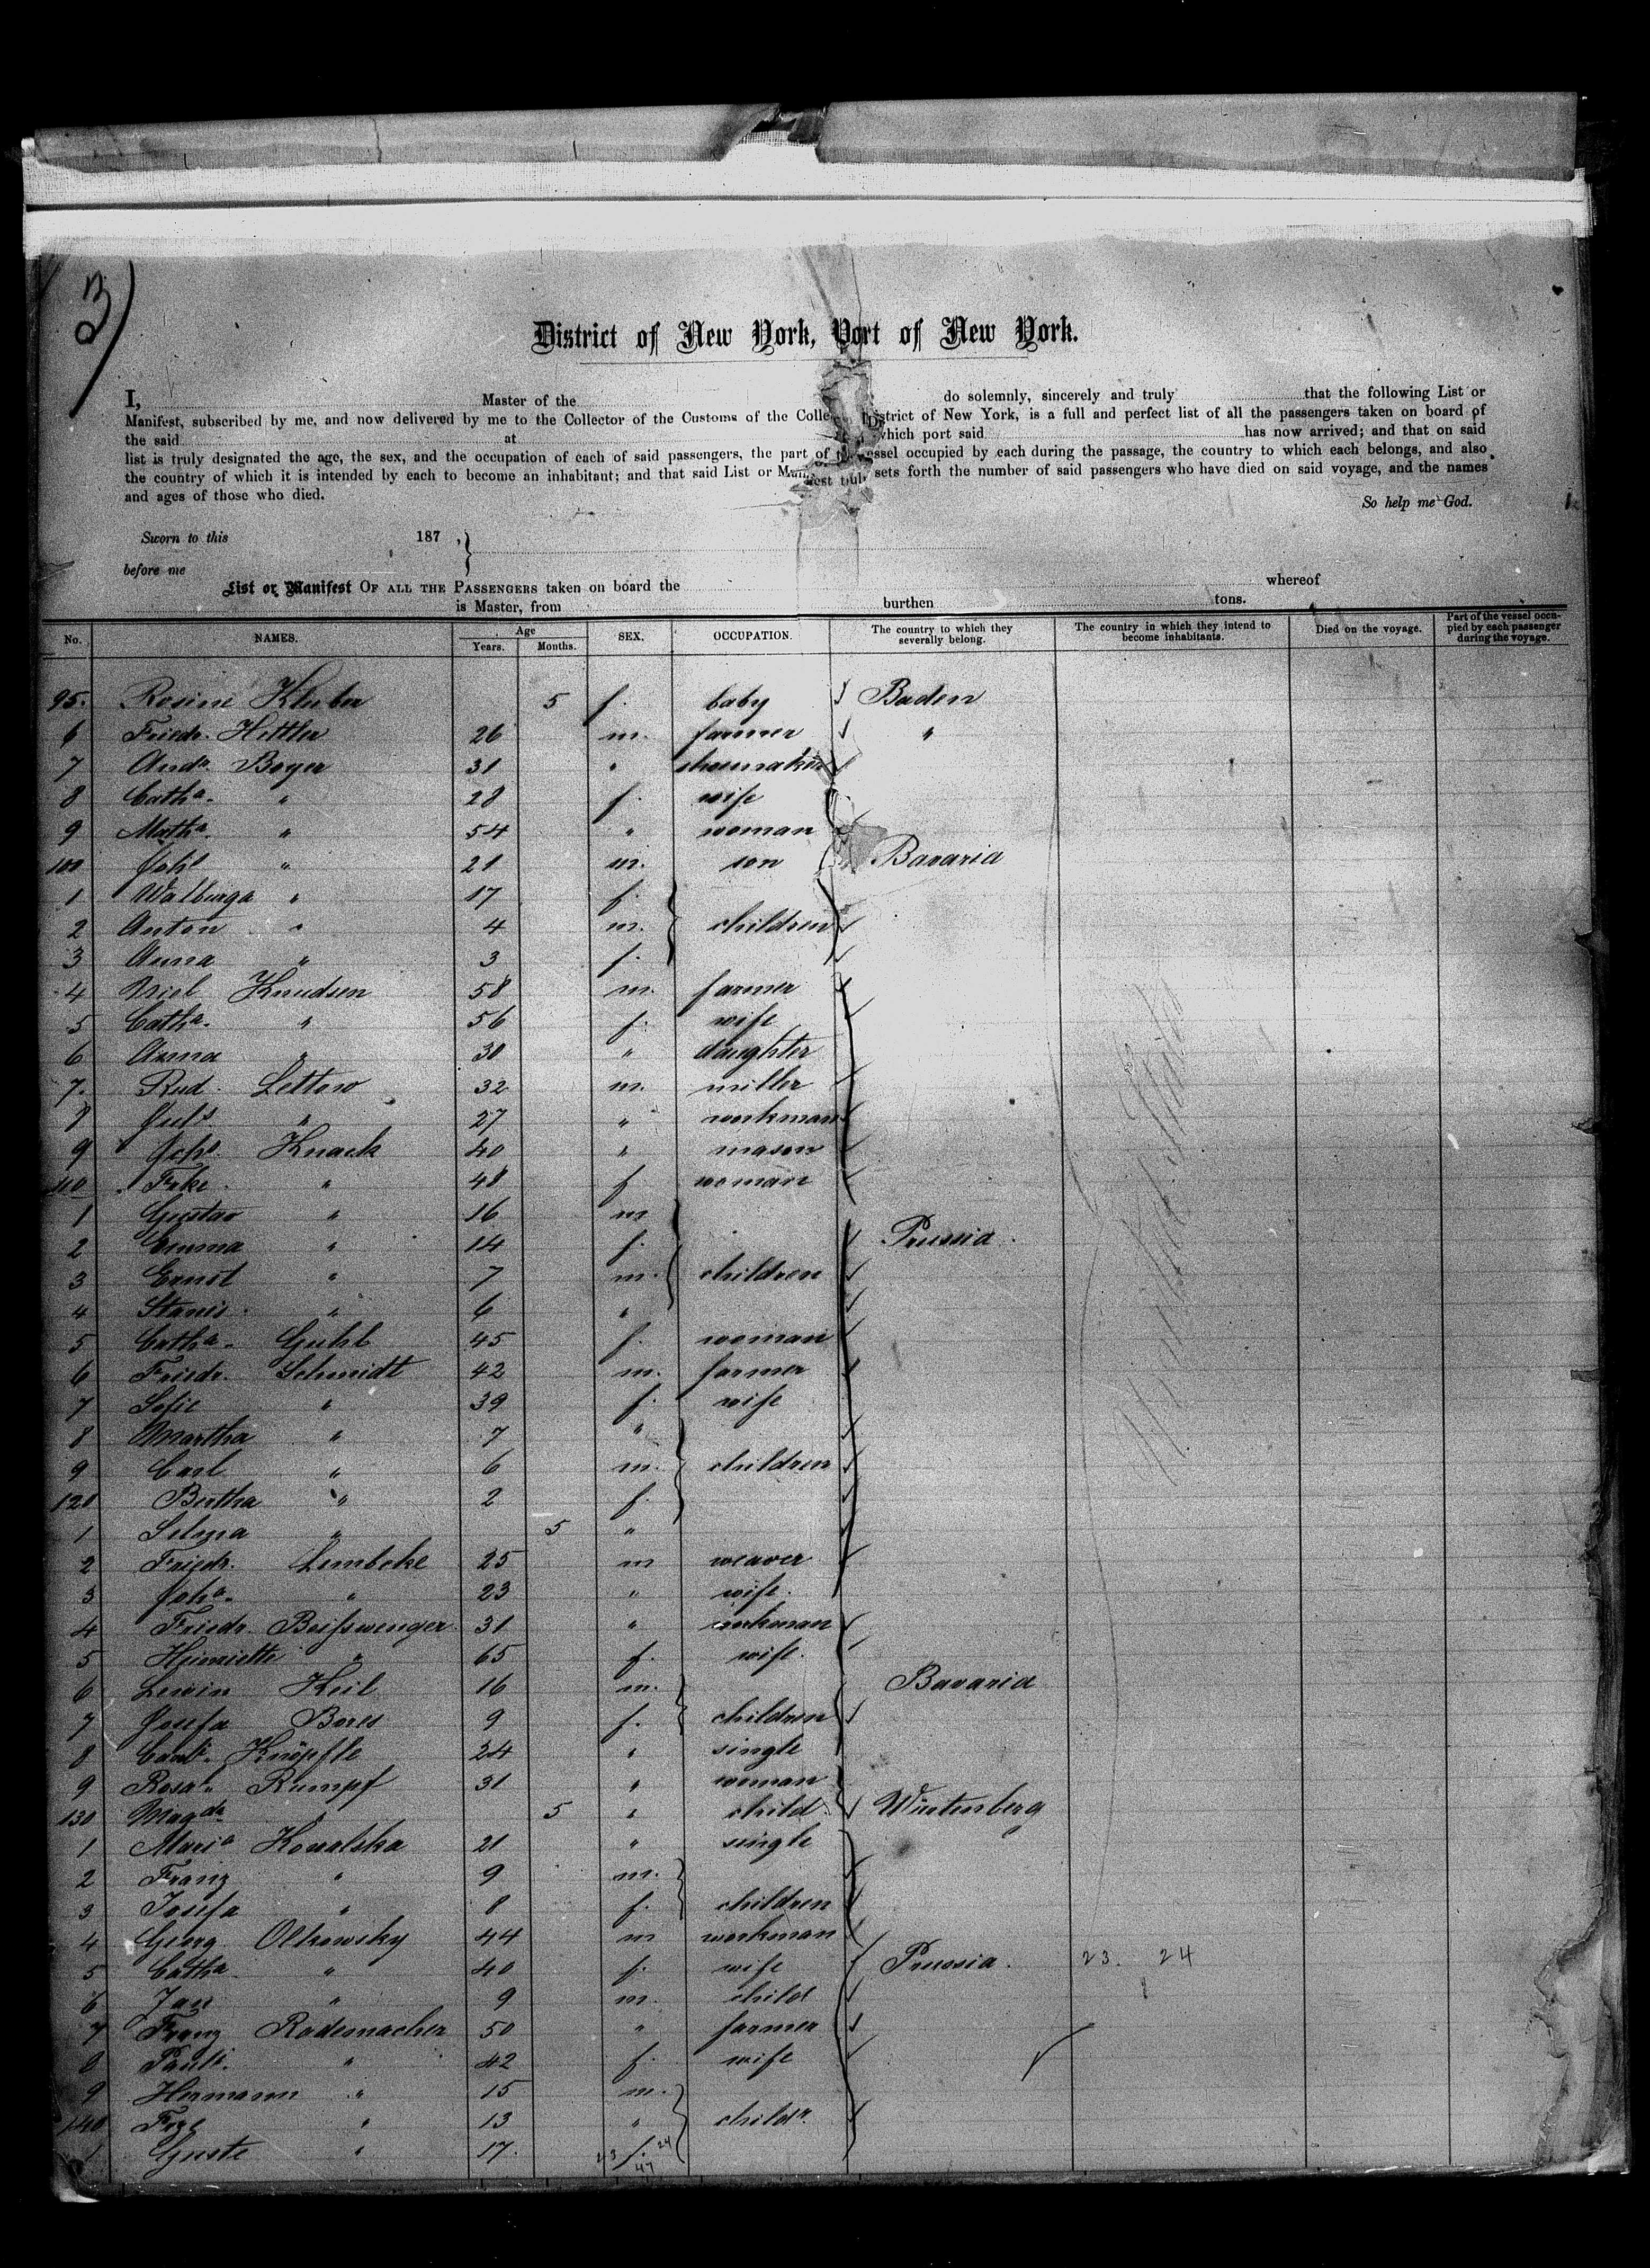 3)
District of New York, Port of New York.
I, Master of the do solemnly, sincerely and truly that the following List or
Manifest, subscribed by me, and now delivered by me to the Collector of the Customs of the Colle District of New York, is a full and perfect list of all the passengers taken on board of
the said at which port said has now arrived; and that on said
list is truly designated the age, the sex, and the occupation of each of said passengers, the part of the vessel occupied by each during the passage, the country to which each belongs, and also
the country of which it is intended by each to become an inhabitant; and that said List or Manifest truly sets forth the number of said passengers who have died on said voyage, and the names
and ages of those who died. So help me God.
Sworn to this 187 , }
before me
List or Manifest OF ALL THE PASSENGERS taken on board the whereof
is Master, from burthen tons.
No. NAMES. Age Years. Months. SEX. OCCUPATION. The country to which they severally belong. The country in which they intend to become inhabitants. Died on the voyage. Part of the vessel occupied by each passenger during the voyage.
95. Rosine 5 f. baby Baden
6 Friedr. Hettler 26 m. farmer "
7 Andr. Boyer 31 " shoemaker
8 Catha. " 28 f. wife
9 Matha. " 54 " woman
100 Johs " 21 m. son Bavaria
1 Walburga " 17 f.
2 Anton " 4 m. children
3 Anna " 3 f.
4 Niel Knudsen 58 m. farmer
5 Catha. " 56 f. wife
6 Anna " 30 " daughter
7. Rud. Lettow 32 m. miller
8 Juls " 27 " workman
9 Johs Knack 40 " mason
110 Frke. " 48 f woman
1 Gustav " 16 m
2 Emma " 14 f. Prussia.
3 Ernst " 7 m. children
4 Stanis. " 6 "
5 Catha. Guhl 45 f. woman
6 Friedr. Schmidt 42 m. farmer
7 Sofie " 39 f. wife
8 Martha " 7 "
9 Carl " 6 m. children
120 Bertha " 2 f.
1 Selma " 5 "
2 Friedr. Lembcke 25 m weaver
3 Joha. " 23 " wife.
4 Friedr. Beißwenger 31 " workman
5 Henriette " 65 f. wife.
6 Lewin Keil 16 m. Bavaria
7 Josefa Bores 9 f. children
8 Knöpfle 24 " single
9 Rosa. Rumpf 31 " woman
130 Magda. " 5 " child. Würtenberg
1 Maria Kowalska 21 " single
2 Franz " 9 m.
3 Josefa " 8 f. children
4 Georg Olkowsky 44 m workman
5 Catha. " 40 f. wife Prussia. 23. 24
6 Jan " 9 m. child
7 Franz Rademacher 50 " farmer
8 Paula. " 42 f. wife
9 Hermann " 15 m.
140 " 13 " childr.
1 Guste " 17. f.
23 / 24
47